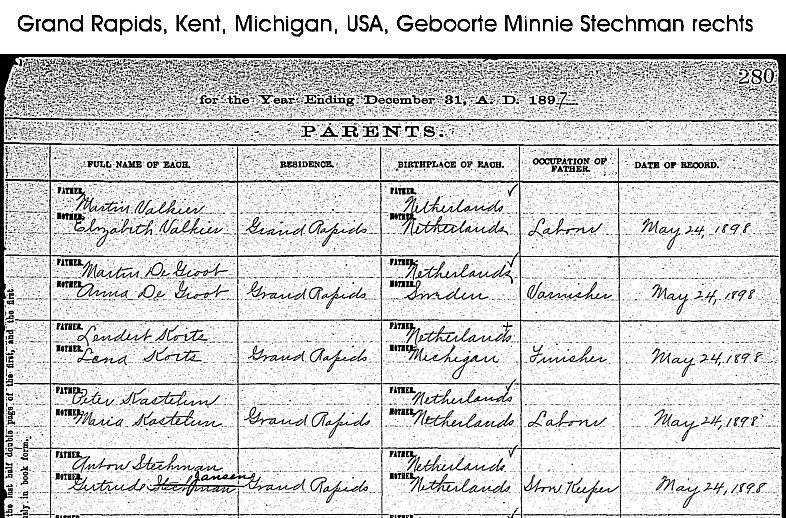 Grand Rapids, Kent, Michigan, USA, Geboorte Minnie Stechman rechts
280
for the Year Ending December 31, A. D. 1897
PARENTS.
FULL NAME OF EACH. RESIDENCE. BIRTHPLACE OF EACH. OCCUPATION OF FATHER. DATE OF RECORD.
FATHER. Martin Valkier FATHER. Netherlands
MOTHER. Elizabeth Valkier Grand Rapids MOTHER. Netherlands Labour May 24, 1898
FATHER. Martin De Groot FATHER. Netherlands
MOTHER. Anna De Groot Grand Rapids MOTHER. Sweden Varnisher May 24, 1898
FATHER. Lendert Korte FATHER. Netherlands
MOTHER. Lena Korte Grand Rapids MOTHER. Michigan Finisher May 24, 1898
FATHER. Peter Kastelin FATHER. Netherlands
MOTHER. Maria Kastelin Grand Rapids MOTHER. Netherlands Labour May 24, 1898
FATHER. Anton Stechman FATHER. Netherlands
Jansens
MOTHER. Gertrude Stechman Grand Rapids MOTHER. Netherlands Stow Keeper May 24, 1898
the last half double page of the first, and the first
in book form.